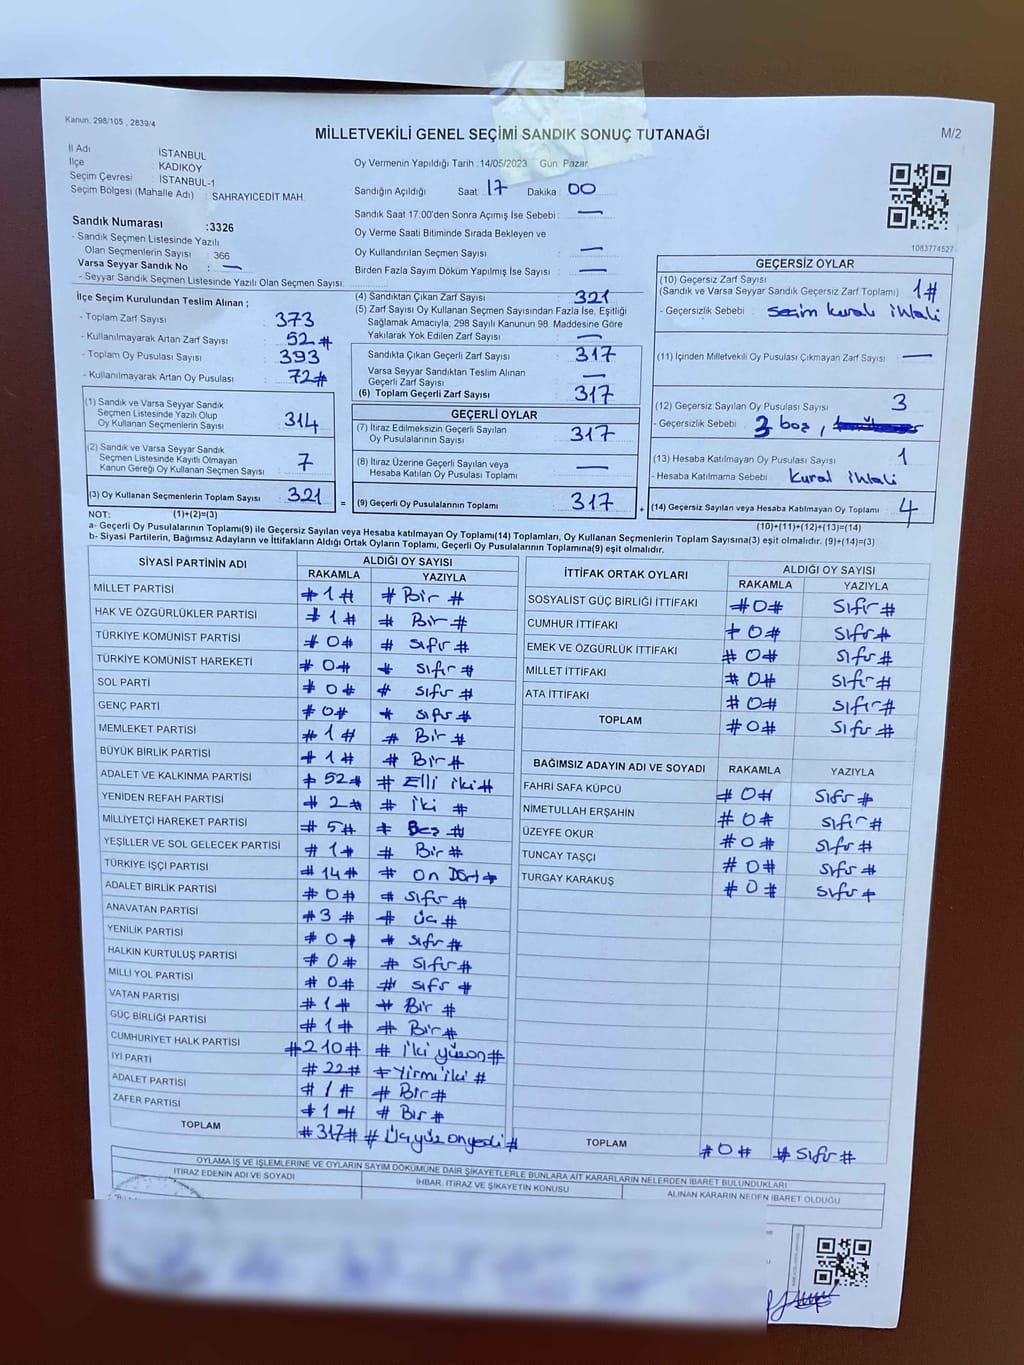 Kanun, 298/105 , 2839/4
MİLLETVEKİLİ GENEL SEÇİMİ SANDIK SONUÇ TUTANAĞI
M/2
İl Adı İSTANBUL
İlçe KADIKÖY
Seçim Çevresi İSTANBUL-1
Seçim Bölgesi (Mahalle Adı) : SAHRAYICEDİT MAH.
Sandık Numarası :3326
- Sandık Seçmen Listesinde Yazılı
Olan Seçmenlerin Sayısı : 366
Varsa Seyyar Sandık No : —
- Seyyar Sandık Seçmen Listesinde Yazılı Olan Seçmen Sayısı:
Oy Vermenin Yapıldığı Tarih :14/05/2023 Gün: Pazar
Sandığın Açıldığı Saat: 17 Dakika 00
Sandık Saat 17:00'den Sonra Açımış İse Sebebi : —
Oy Verme Saati Bitiminde Sırada Bekleyen ve
Oy Kullandırılan Seçmen Sayısı : —
Birden Fazla Sayım Döküm Yapılmış İse Sayısı : —
1083774527
İlçe Seçim Kurulundan Teslim Alınan ;
- Toplam Zarf Sayısı : 373
- Kullanılmayarak Artan Zarf Sayısı : 52#
- Toplam Oy Pusulası Sayısı : 393
- Kullanılmayarak Artan Oy Pusulası : 72#
(1) Sandık ve Varsa Seyyar Sandık
Seçmen Listesinde Yazılı Olup
Oy Kullanan Seçmenlerin Sayısı : 314
(2) Sandık ve Varsa Seyyar Sandık
Seçmen Listesinde Kayıtlı Olmayan
Kanun Gereği Oy Kullanan Seçmen Sayısı : 7
(3) Oy Kullanan Seçmenlerin Toplam Sayısı : 321 =
(4) Sandıktan Çıkan Zarf Sayısı : 321
(5) Zarf Sayısı Oy Kullanan Seçmen Sayısından Fazla İse, Eşitliği
Sağlamak Amacıyla, 298 Sayılı Kanunun 98. Maddesine Göre
Yakılarak Yok Edilen Zarf Sayısı : —
Sandıkta Çıkan Geçerli Zarf Sayısı : 317
Varsa Seyyar Sandıktan Teslim Alınan
Geçerli Zarf Sayısı : —
(6) Toplam Geçerli Zarf Sayısı : 317
GEÇERLİ OYLAR
(7) İtiraz Edilmeksizin Geçerli Sayılan
Oy Pusulalarının Sayısı : 317
(8) İtiraz Üzerine Geçerli Sayılan veya
Hesaba Katılan Oy Pusulası Toplamı : —
(9) Geçerli Oy Pusulalarının Toplamı : 317 +
GEÇERSİZ OYLAR
(10) Geçersiz Zarf Sayısı
(Sandık ve Varsa Seyyar Sandık Geçersiz Zarf Toplamı) : 1#
- Geçersizlik Sebebi : seçim kuralı ihlali
(11) İçinden Milletvekili Oy Pusulası Çıkmayan Zarf Sayısı : —
(12) Geçersiz Sayılan Oy Pusulası Sayısı : 3
- Geçersizlik Sebebi : 3 boş,
(13) Hesaba Katılmayan Oy Pusulası Sayısı : 1
- Hesaba Katılmama Sebebi : kural ihlali
(14) Geçersiz Sayılan veya Hesaba Katılmayan Oy Toplamı : 4
NOT: (1)+(2)=(3)
(10)+(11)+(12)+(13)=(14)
a- Geçerli Oy Pusulalarının Toplamı(9) ile Geçersiz Sayılan veya Hesaba katılmayan Oy Toplamı(14) Toplamları, Oy Kullanan Seçmenlerin Toplam Sayısına(3) eşit olmalıdır. (9)+(14)=(3)
b- Siyasi Partilerin, Bağımsız Adayların ve İttifakların Aldığı Ortak Oyların Toplamı, Geçerli Oy Pusulalarının Toplamına(9) eşit olmalıdır.
SİYASİ PARTİNİN ADI ALDIĞI OY SAYISI
RAKAMLA YAZIYLA
MİLLET PARTİSİ #1# #Bir#
HAK VE ÖZGÜRLÜKLER PARTİSİ #1# #Bir#
TÜRKİYE KOMÜNİST PARTİSİ #0# #sıfır#
TÜRKİYE KOMÜNİST HAREKETİ #0# #sıfır#
SOL PARTİ #0# #sıfır#
GENÇ PARTİ #0# #sıfır#
MEMLEKET PARTİSİ #1# #Bir#
BÜYÜK BİRLİK PARTİSİ #1# #Bir#
ADALET VE KALKINMA PARTİSİ #52# #Elli iki#
YENİDEN REFAH PARTİSİ #2# #iki#
MİLLİYETÇİ HAREKET PARTİSİ #5# #Beş#
YEŞİLLER VE SOL GELECEK PARTİSİ #1# #Bir#
TÜRKİYE İŞÇİ PARTİSİ #14# #On Dört#
ADALET BİRLİK PARTİSİ #0# #sıfır#
ANAVATAN PARTİSİ #3# #üç#
YENİLİK PARTİSİ #0# #sıfır#
HALKIN KURTULUŞ PARTİSİ #0# #sıfır#
MİLLİ YOL PARTİSİ #0# #sıfır#
VATAN PARTİSİ #1# #Bir#
GÜÇ BİRLİĞİ PARTİSİ #1# #Bir#
CUMHURİYET HALK PARTİSİ #210# #iki yüzon#
İYİ PARTİ #22# #Yirmi iki#
ADALET PARTİSİ #1# #Bir#
ZAFER PARTİSİ #1# #Bir#
TOPLAM #317# #Üçyüz onyedi#
İTTİFAK ORTAK OYLARI ALDIĞI OY SAYISI
RAKAMLA YAZIYLA
SOSYALİST GÜÇ BİRLİĞİ İTTİFAKI #0# sıfır#
CUMHUR İTTİFAKI #0# sıfır#
EMEK VE ÖZGÜRLÜK İTTİFAKI #0# sıfır#
MİLLET İTTİFAKI #0# sıfır#
ATA İTTİFAKI #0# sıfır#
TOPLAM #0# sıfır#
BAĞIMSIZ ADAYIN ADI VE SOYADI RAKAMLA YAZIYLA
FAHRİ SAFA KÜPCÜ #0# sıfır#
NİMETULLAH ERŞAHİN #0# sıfır#
ÜZEYFE OKUR #0# sıfır#
TUNCAY TAŞÇI #0# sıfır#
TURGAY KARAKUŞ #0# sıfır#
TOPLAM #0# #sıfır#
OYLAMA İŞ VE İŞLEMLERİNE VE OYLARIN SAYIM DÖKÜMÜNE DAİR ŞİKAYETLERLE BUNLARA AİT KARARLARIN NELERDEN İBARET BULUNDUKLARI
İTİRAZ EDENİN ADI VE SOYADI İHBAR, İTİRAZ VE ŞİKAYETİN KONUSU ALINAN KARARIN NEDEN İBARET OLDUĞU